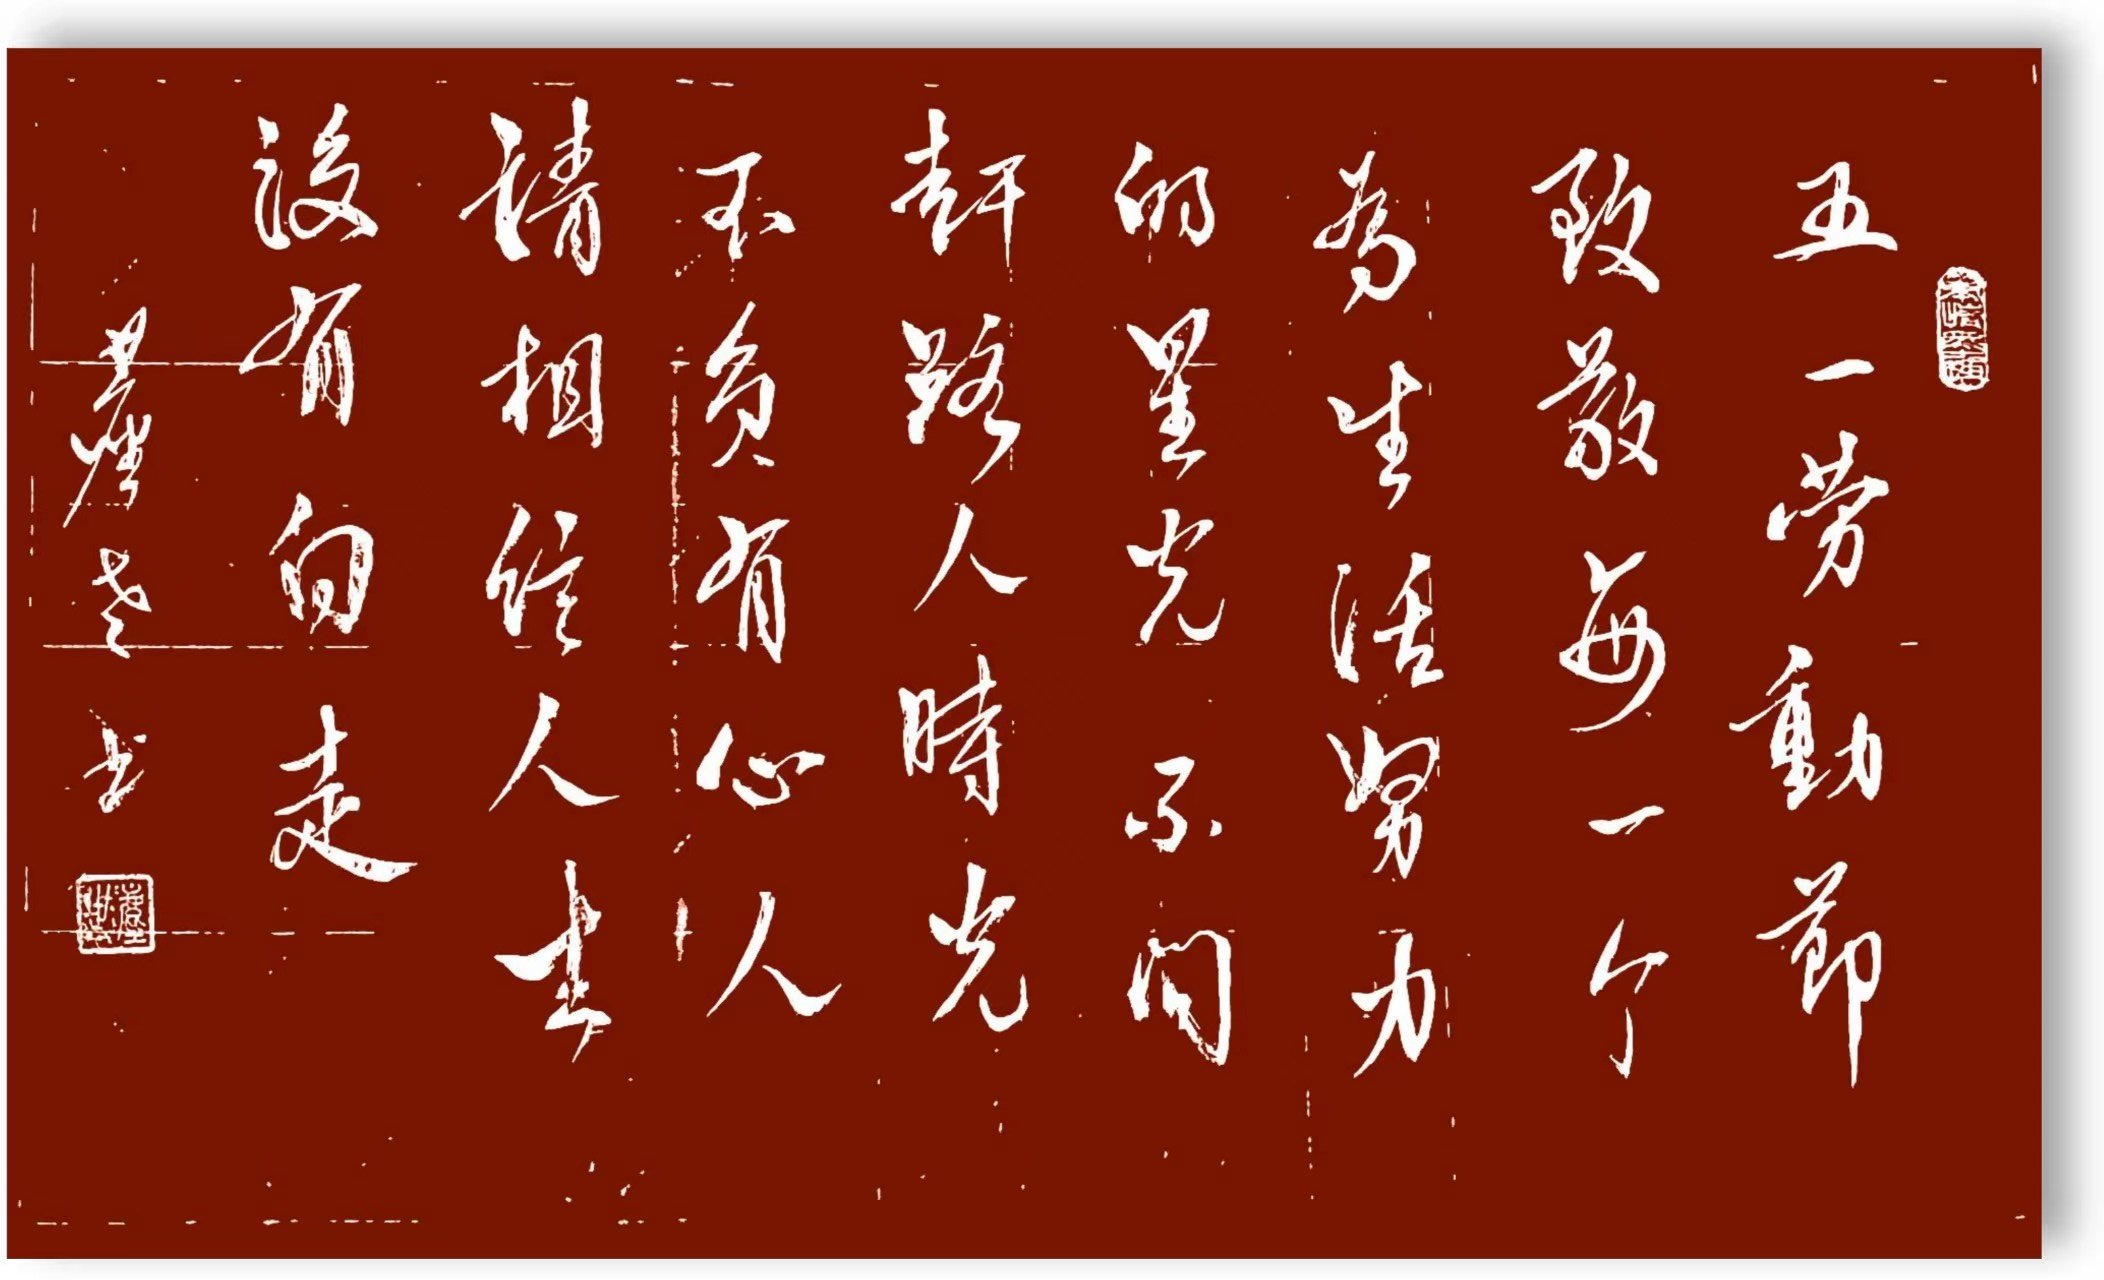 五一劳動節
致敬每一个
為生活努力
的星光不问
赶路人時光
不負有心人
請相信人生
没有白走
老书